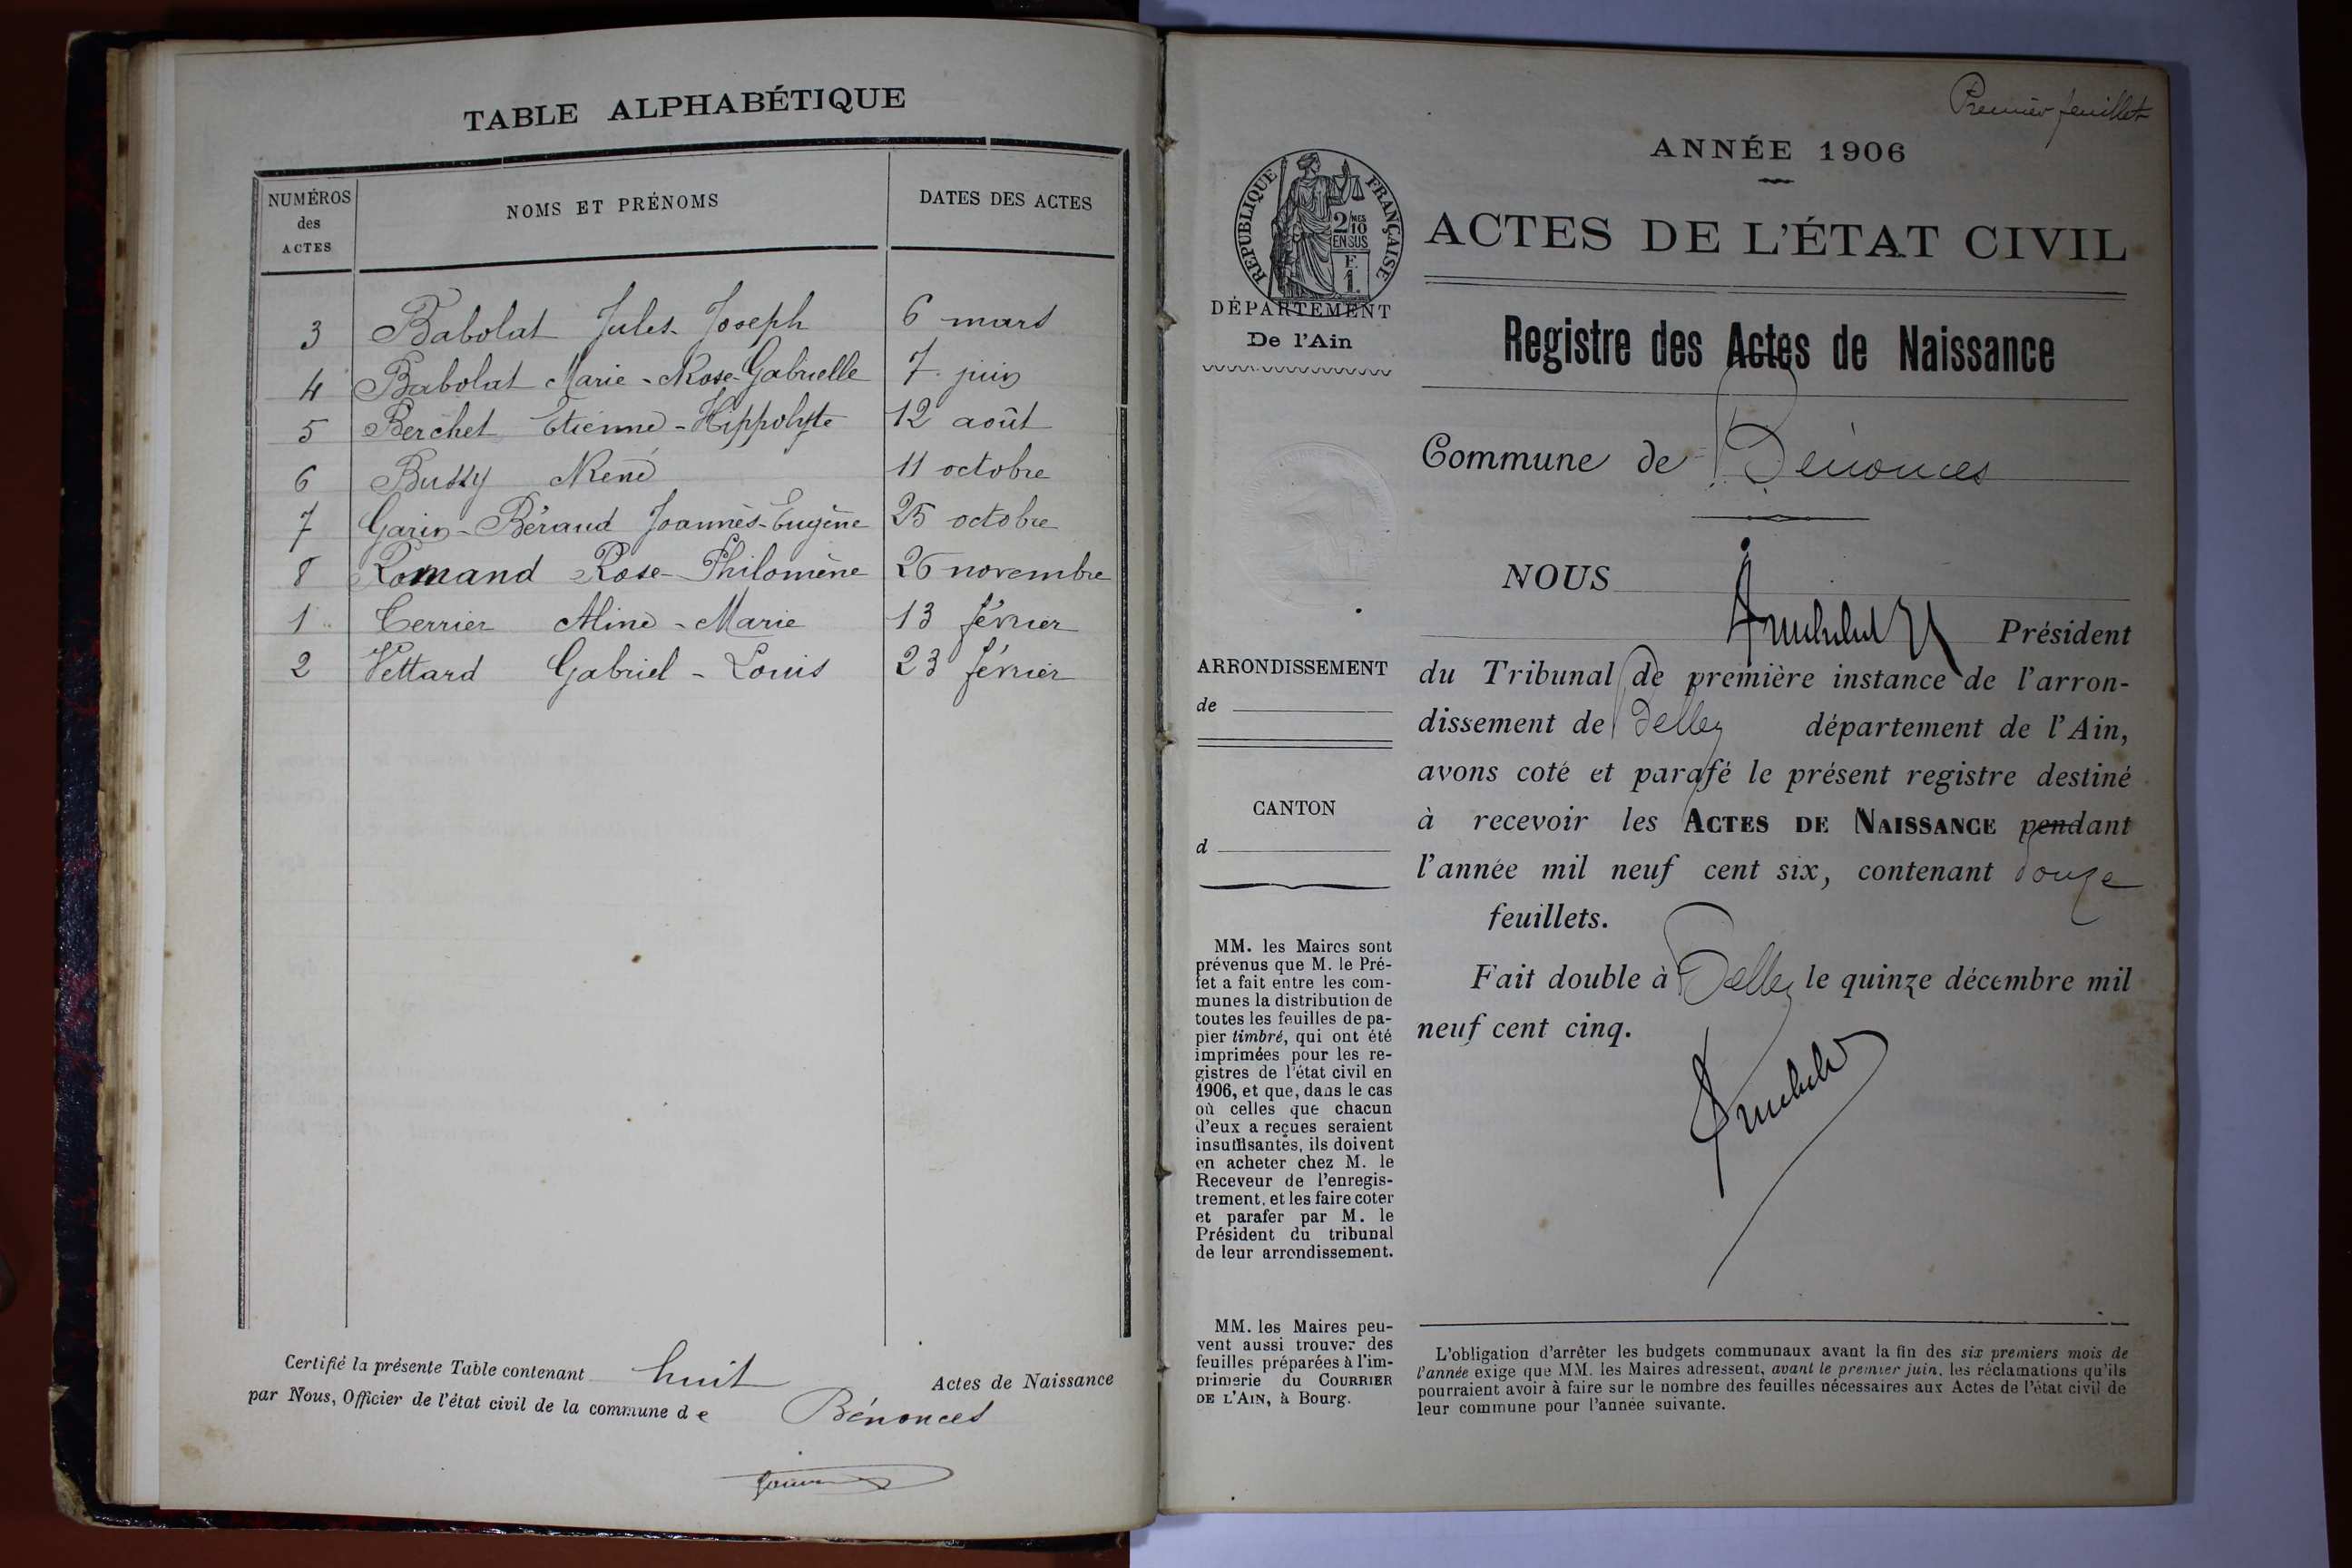 TABLE ALPHABÉTIQUE
NUMÉROS
des
ACTES
NOMS ET PRÉNOMS
DATES DES ACTES
3 Babolat Jules-Joseph 6 mars
4 Babolat Marie-Rose-Gabrielle 7 juin
5 Berchet Etienne-Hippolyte 12 août
6 Bussy René 11 octobre
7 Garin-Béraud Joannès-Eugène 25 octobre
8 Romand Rose-Philomène 26 novembre
1 Terrier Aline-Marie 13 février
2 Vettard Gabriel-Louis 23 février
Certifié la présente Table contenant huit Actes de Naissance
par Nous, Officier de l'état civil de la commune de Bénonces
Premier feuillet
ANNÉE 1906
RÉPUBLIQUE FRANÇAISE
2/10 MES
EN SUS
F.
1.
DÉPARTEMENT
De l'Ain
ACTES DE L'ÉTAT CIVIL
Registre des Actes de Naissance
Commune de Bénonces
NOUS
Président
du Tribunal de première instance de l'arron-
dissement de Belley département de l'Ain,
avons coté et parafé le présent registre destiné
à recevoir les ACTES DE NAISSANCE pendant
l'année mil neuf cent six, contenant douze
feuillets.
Fait double à Belley le quinze décembre mil
neuf cent cinq.
ARRONDISSEMENT
de
CANTON
d
MM. les Maires sont
prévenus que M. le Pré-
fet a fait entre les com-
munes la distribution de
toutes les feuilles de pa-
pier timbré, qui ont été
imprimées pour les re-
gistres de l'état civil en
1906, et que, dans le cas
où celles que chacun
d'eux a reçues seraient
insuffisantes, ils doivent
en acheter chez M. le
Receveur de l'enregis-
trement, et les faire coter
et parafer par M. le
Président du tribunal
de leur arrondissement.
MM. les Maires peu-
vent aussi trouver des
feuilles préparées à l'im-
primerie du COURRIER
DE L'AIN, à Bourg.
L'obligation d'arrêter les budgets communaux avant la fin des six premiers mois de
l'année exige que MM. les Maires adressent, avant le premier juin, les réclamations qu'ils
pourraient avoir à faire sur le nombre des feuilles nécessaires aux Actes de l'état civil de
leur commune pour l'année suivante.